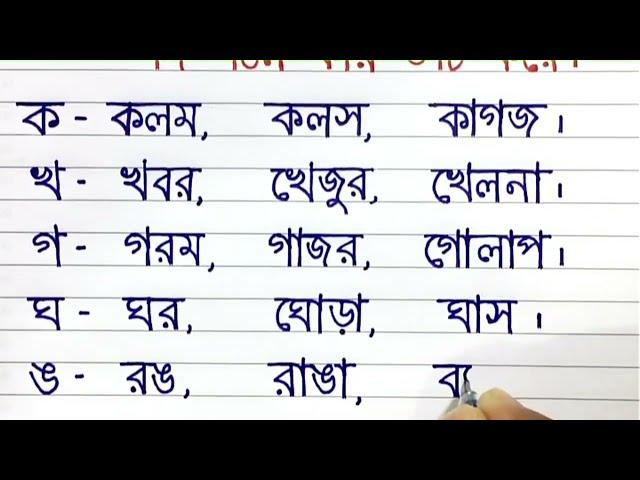 ক - কলম, কলস, কাগজ।
খ - খবর, খেজুর, খেলনা।
গ - গরম, গাজর, গোলাপ।
ঘ - ঘর, ঘোড়া, ঘাস।
ঙ - রঙ, রাঙা,